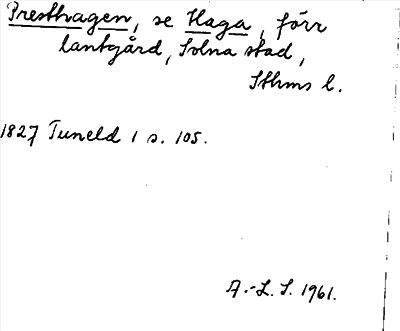 Presthagen, se Haga, förr
lantgård, Solna stad,
Sthms l.
1827 Tuneld 1 s. 105.
A.-L. S. 1961.